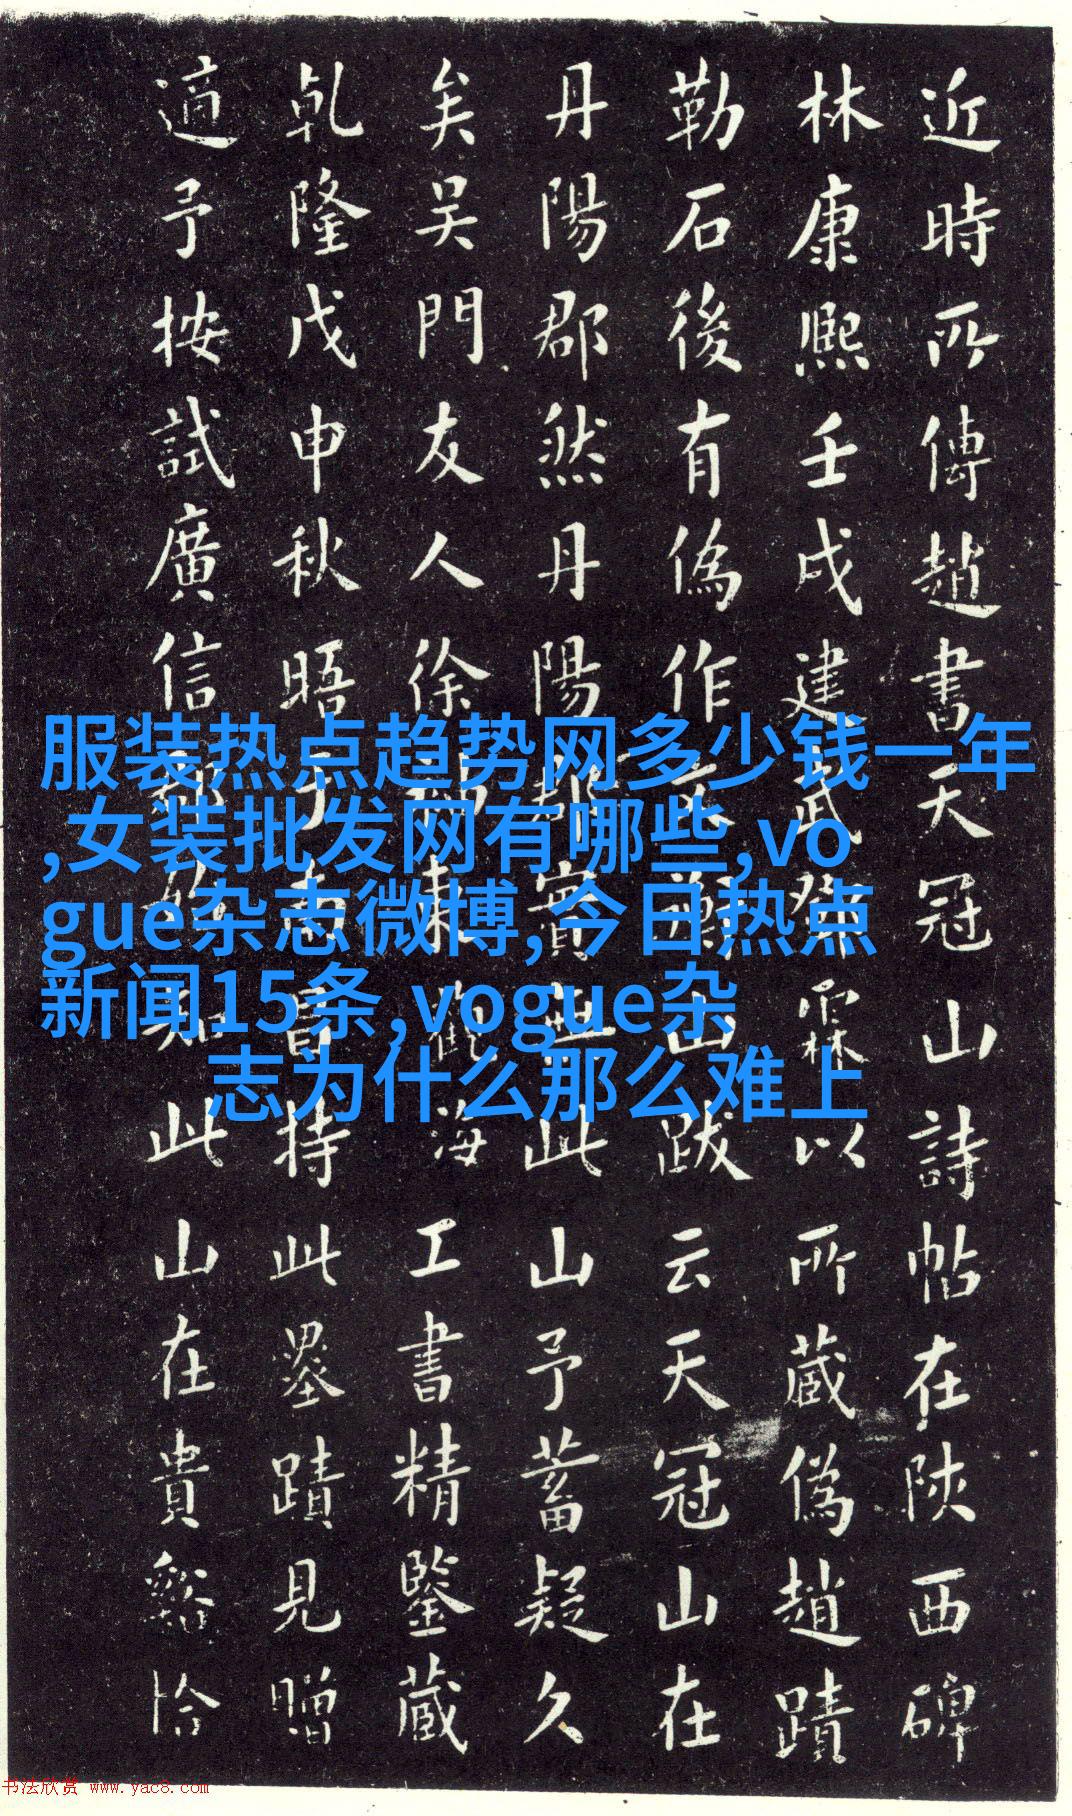 近時所傳趙書天冠山詩帖在陝西碑
林康熙壬戌建武霖以所蔵偽趙蹟
勒石後有偽作山跋云天冠山在
丹陽郡然丹陽郡實無此山予蓄疑久
矣吳門友人徐海工書精鑒蔵
乹隆戊申秋晤于持此墨蹟見贈
適予按試廣信郡知此山在貴谿恰
服装热点趋势网多少钱一年
,女装批发网有哪些,vo
gue杂志微博,今日热点
新闻15条,vogue杂
志为什么那么难上
书法欣赏 www.yac8.com